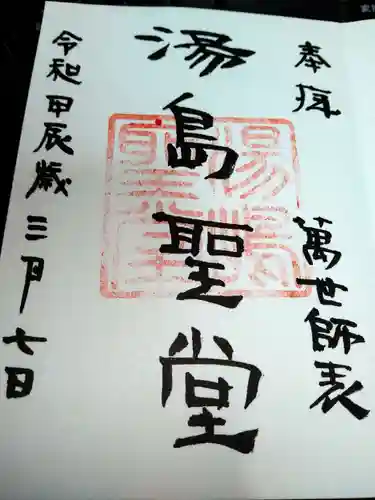 奉拝
萬世師表
湯島聖堂
令和甲辰歳三月七日